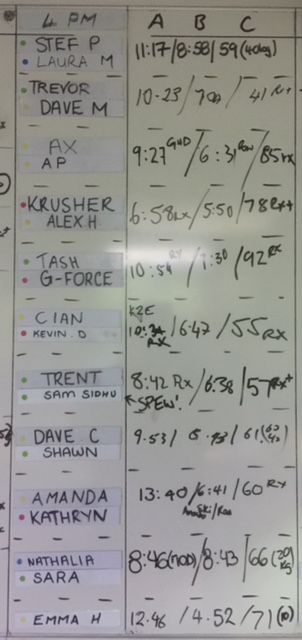 4 PM A B C
STEF P
LAURA M
11:17/8:58/59(40kg)
TREVOR
DAVE M
10:23/ /41
AX
AP
9:27 /6:31Row/85rx
KRUSHER
ALEX.H
6:58Rx/5:50/78Rx+
TASH
G-FORCE
10:54 RX/7:30/92RX
CIAN
KEVIN.D
K2E
RX /6:47/55RX
TRENT
SAM SIDHU
8:42 Rx/6:38/57Rx+
SPEW!
DAVE C
SHAWN
9.53/ /61
AMANDA
KATHRYN
13:40/6:41/60 Rx
Ski/Row
NATHALIA
SARA
8:46(MOD)/8:43/66(20kg)
EMMA H
12.46/4.52/71